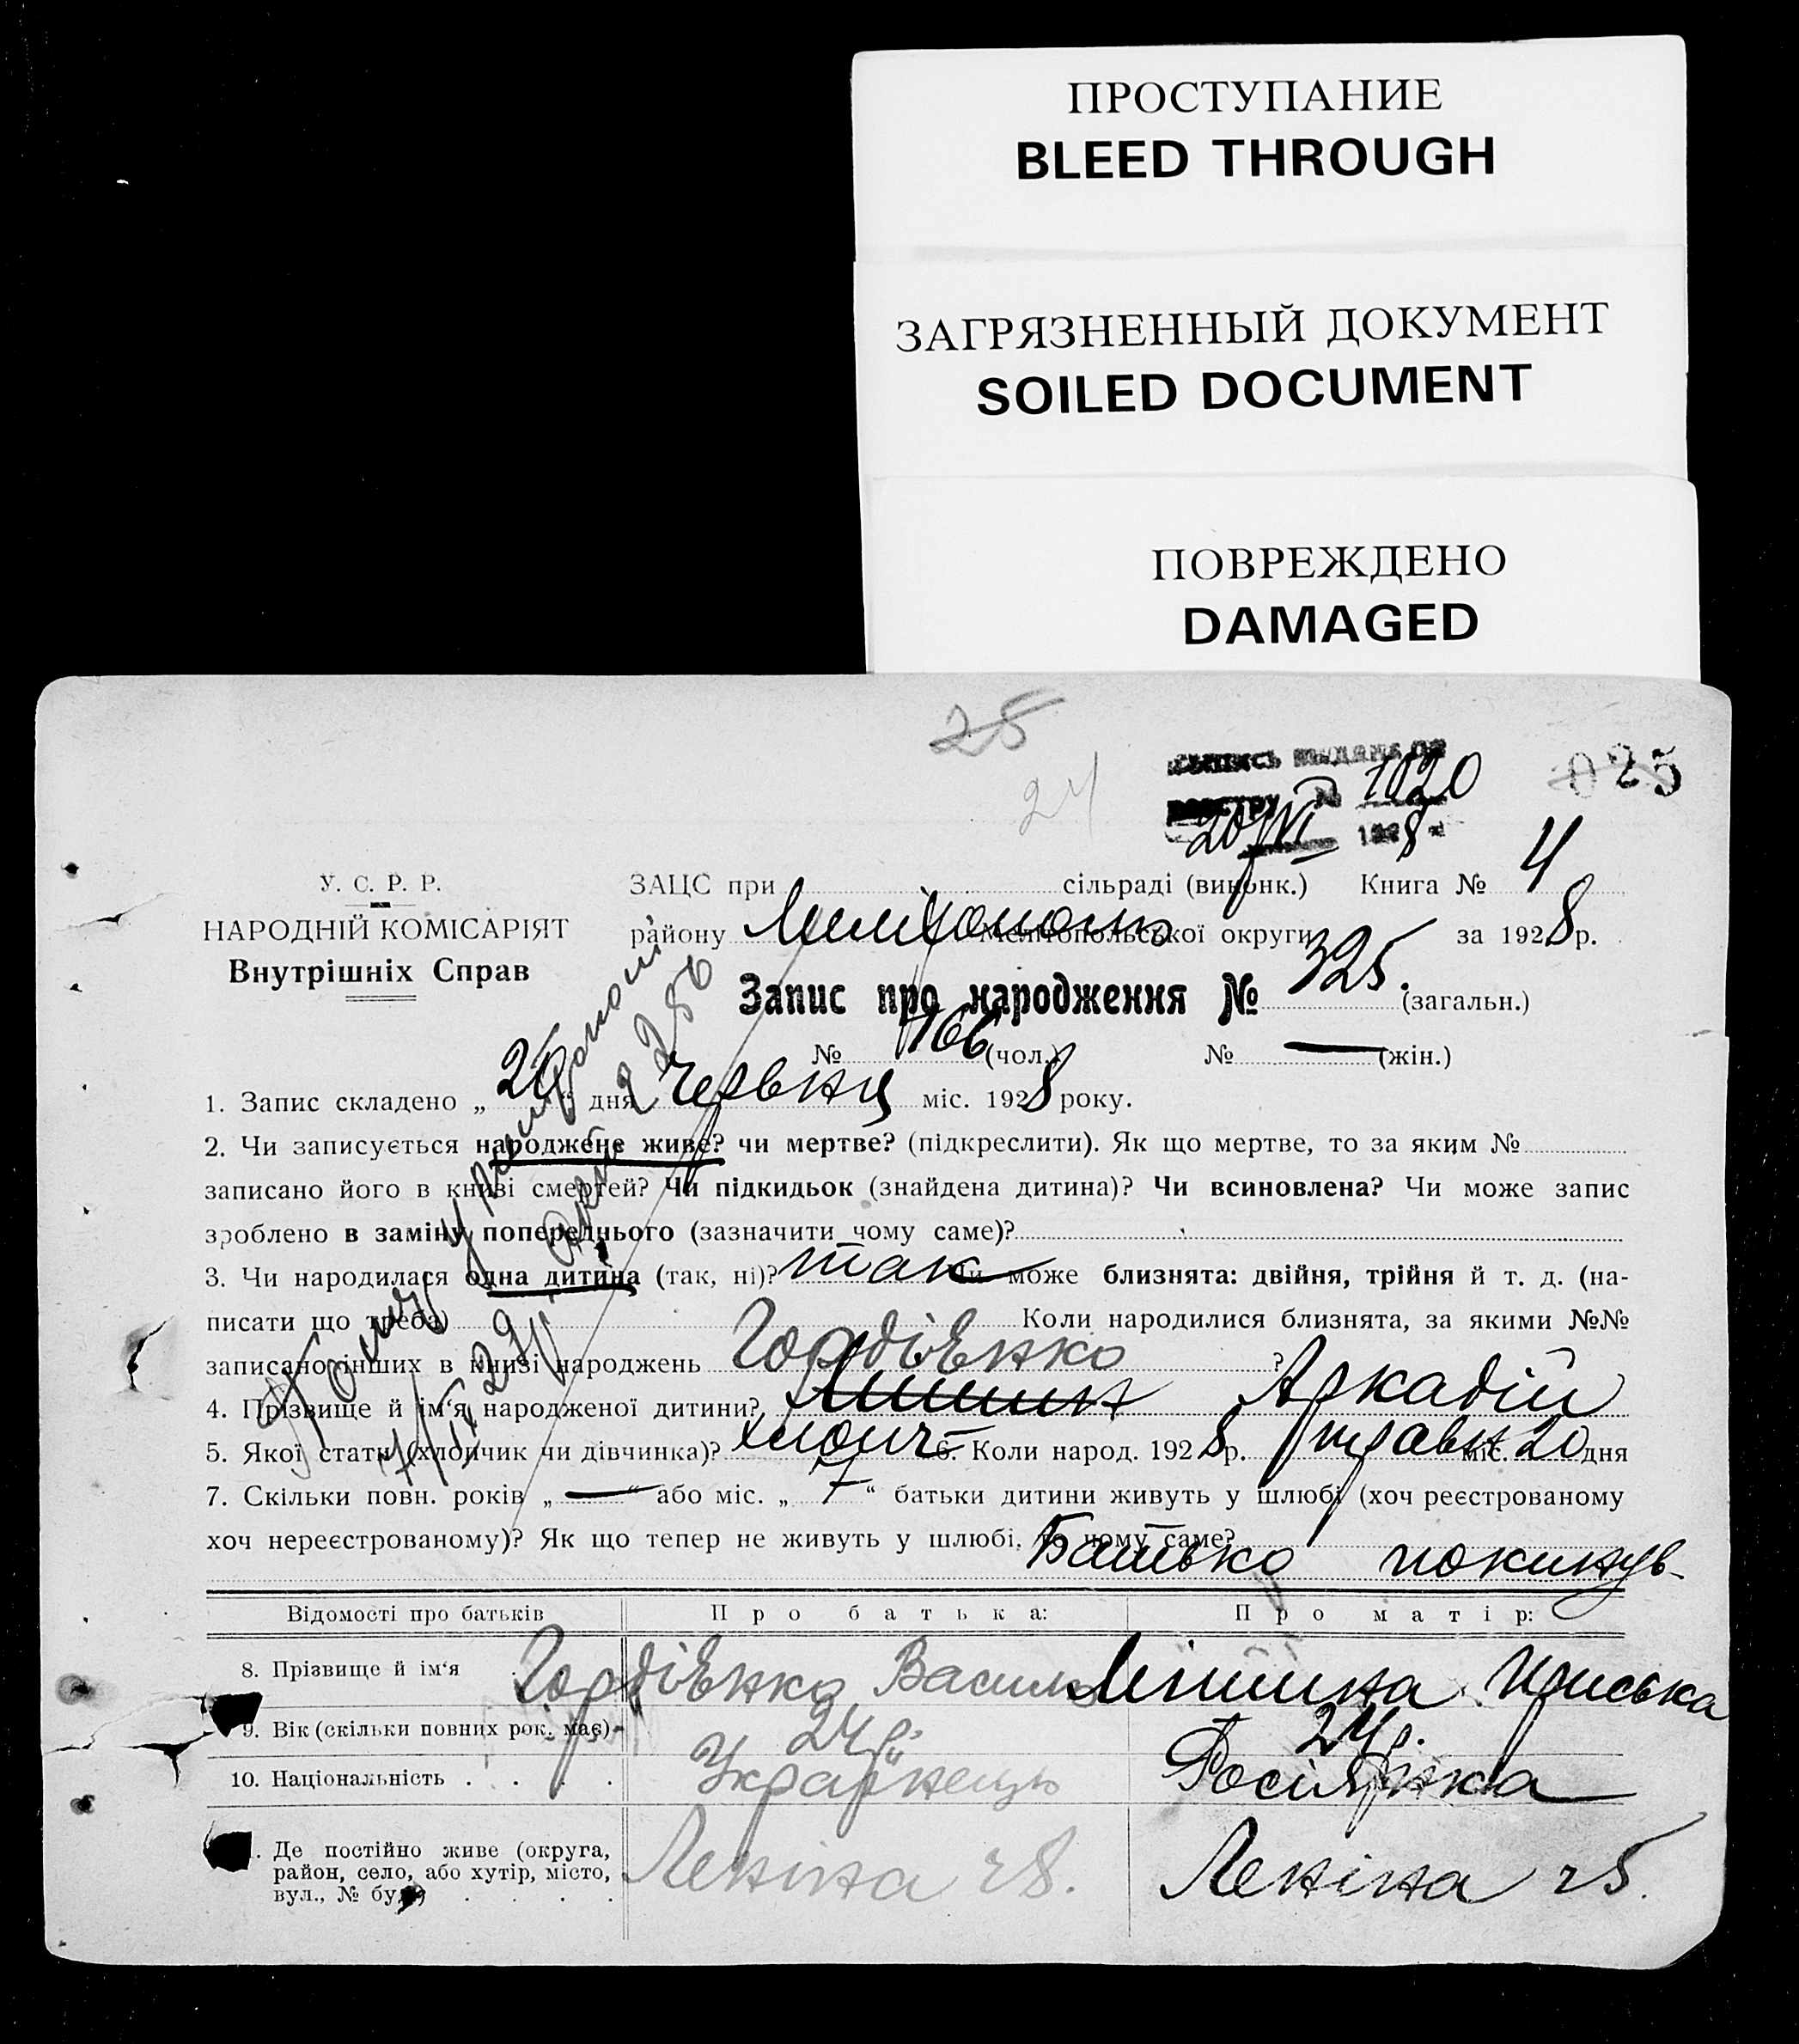 ПРОСТУПАНИЕ
BLEED THROUGH
ЗАГРЯЗНЕННЫЙ ДОКУМЕНТ
SOILED DOCUMENT
ПОВРЕЖДЕНО
DAMAGED
25
24
1020
025
20/VI 1928
У. С. Р. Р.
НАРОДНІЙ КОМІСАРІЯТ
Внутрішніх Справ
ЗАЦС при сільраді (виконк.) Книга № 4
району Мелітополь Мелітопольської округи за 1928 р.
Запис про народження № 325. (загальн.)
№ 166 (чол.) № — (жін.)
1. Запис складено „20“ дня Червня міс. 1928 року.
2. Чи записується народжене живе? чи мертве? (підкреслити). Як що мертве, то за яким №
записано його в книзі смертей? Чи підкидьок (знайдена дитина)? Чи всиновлена? Чи може запис
зроблено в заміну попереднього (зазначити чому саме)?
3. Чи народилася одна дитина (так, ні)? так Чи може близнята: двійня, трійня й т. д. (на-
писати що треба) Коли народилися близнята, за якими №№
записано інших в книзі народжень Гордієнко ?
4. Прізвище й ім'я народженої дитини? Аркадій
5. Якої стати (хлопчик чи дівчинка)? хлопч- 6. Коли народ. 1928 р. травня міс. 20 дня
7. Скільки повн. років „—“ або міс. „7“ батьки дитини живуть у шлюбі (хоч реєстрованому
хоч нереєстрованому)? Як що тепер не живуть у шлюбі, то чому саме?
Батько покинув
Відомості про батьків Про батька: Про матір:
8. Прізвище й ім'я Гордієнко Василь Мішина Приська
9. Вік (скільки повних рок. має) 24 р. 24 р.
10. Національність Українець Росіянка
Де постійно живе (округа, район, село, або хутір, місто, вул., № буд.) Леніна 28. Леніна 25.